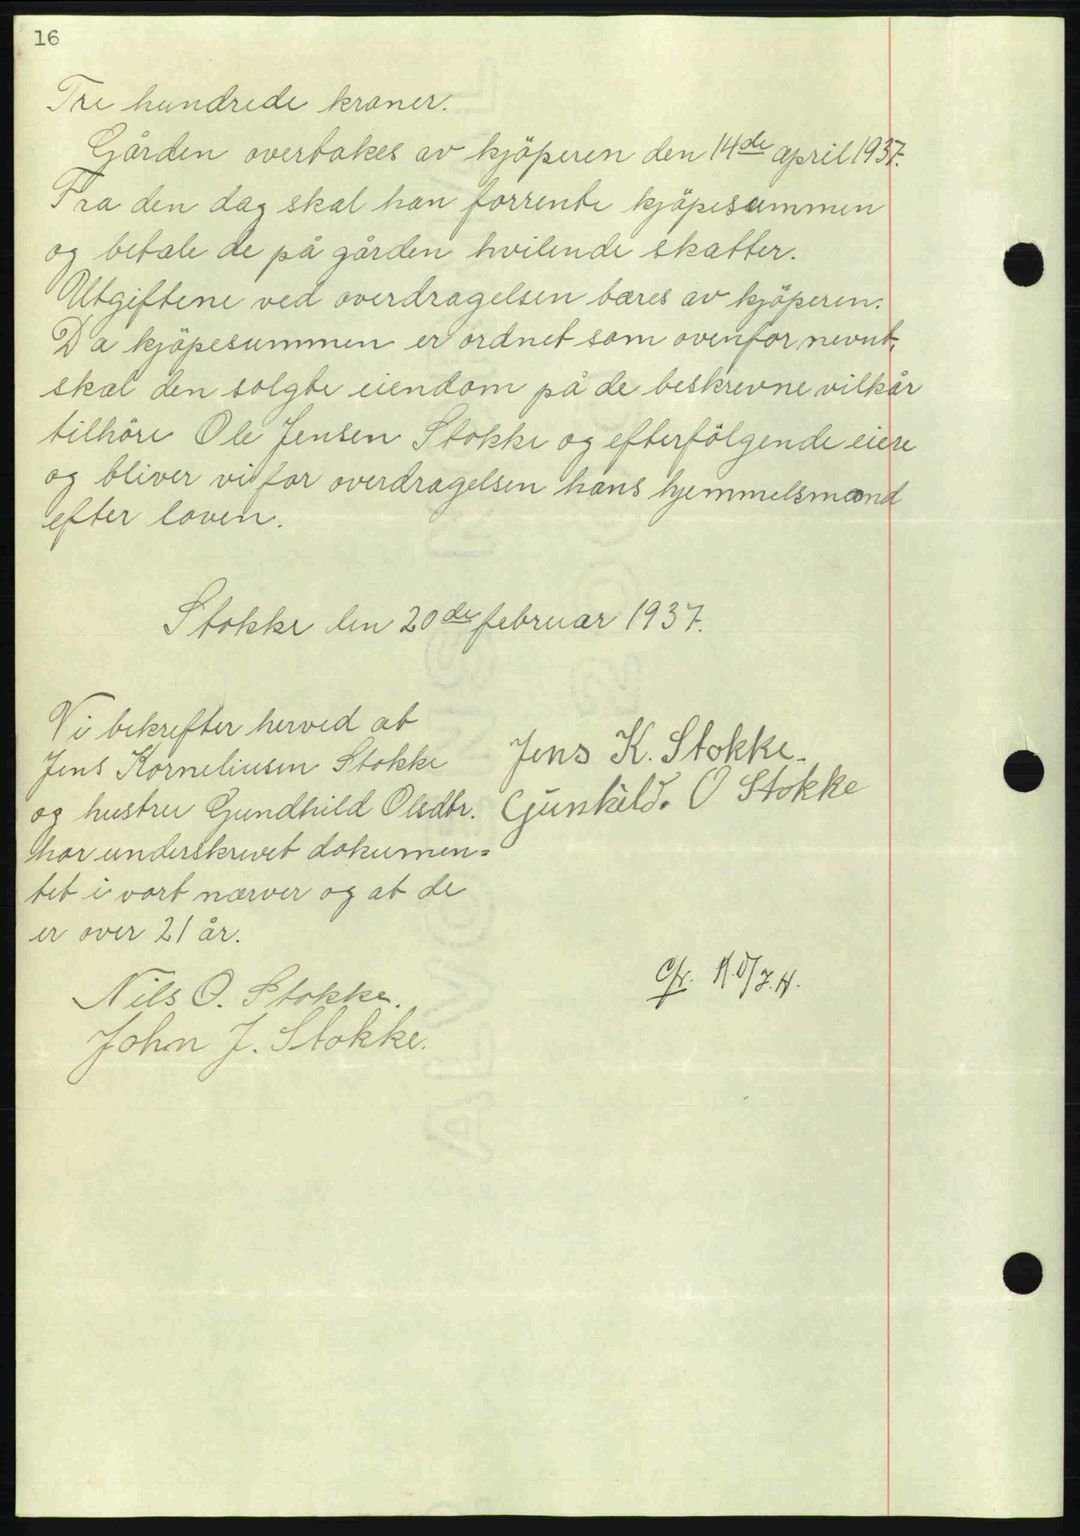 16
Tre hundrede kroner.
Gården overtakes av kjöperen den 14de april 1937.
Fra den dag skal han forrente kjöpesummen
og betale de på gården hvilende skatter.
Utgiftene ved overdragelsen bæres av kjöperen.
Da kjöpesummen er ordnet som ovenfor nevnt,
skal den solgte eiendom på de beskrevne vilkår
tilhöre Ole Jensen Stokke og efterfölgende eiere
og bliver vi for overdragelsen hans hjemmelsmænd
efter loven.
Stokke den 20de februar 1937.
Vi bekrefter herved at
Jens Korneliusen Stokke
og hustru Gundhild Olsdtr.
har underskrevet dokumen=
tet i vort nærver og at de
er over 21 år.
Nils O. Stokke.
John J. Stokke.
Jens K. Stokke.
Gunhild. O Stokke